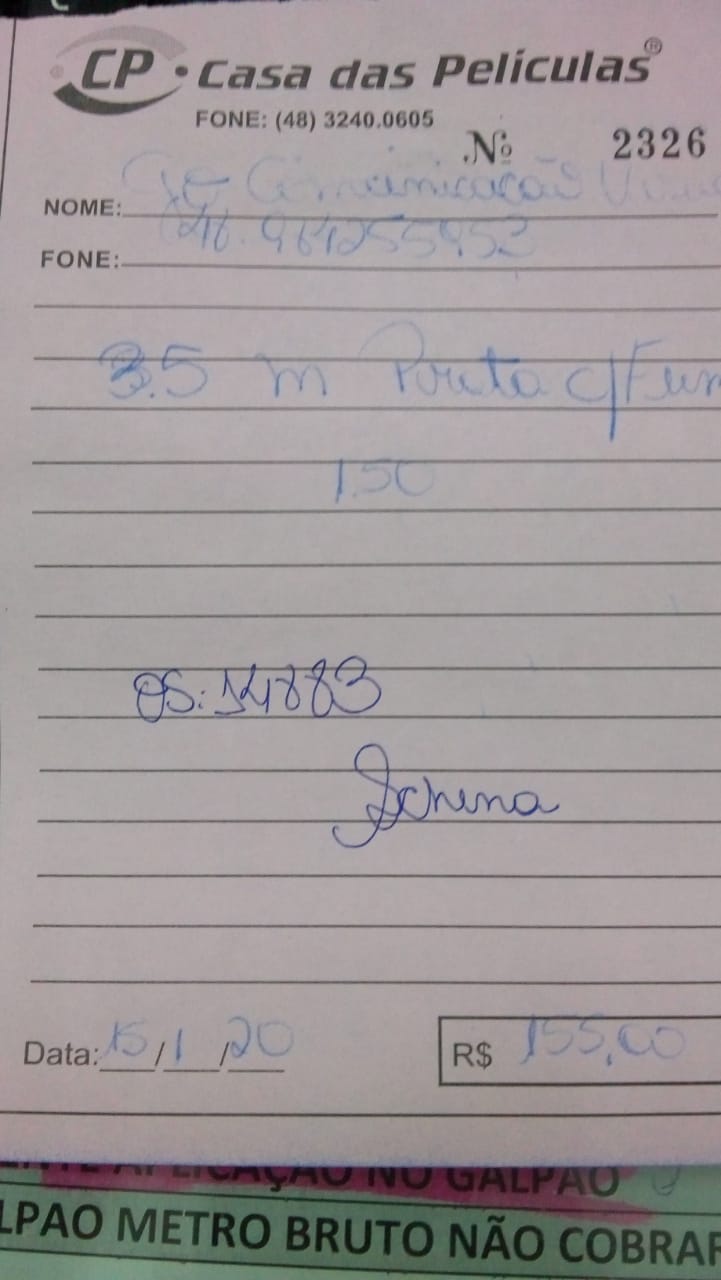 CP • Casa das Películas®
FONE: (48) 3240.0605
Nº 2326
NOME: Comunicação
FONE:
3.5 m Preta c/
1.50
OS: 14883
Schena
Data: 15/1/20
R$ 155,00
APLICAÇÃO NO GALPÃO
LPAO METRO BRUTO NÃO COBRAR